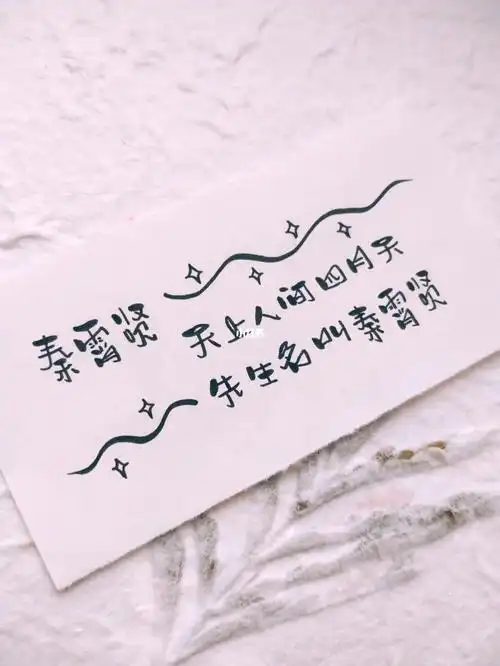 秦霄贤 天上人间四月天
先生名叫秦霄贤